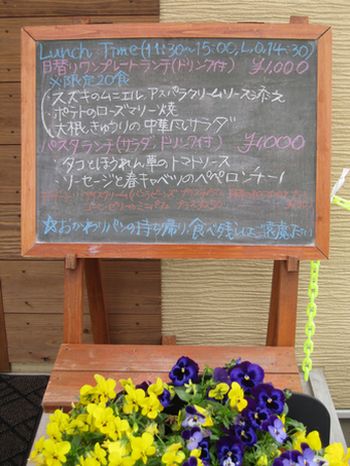 Lunch Time(11:30~15:00, L.O.14:30)
月替りワンプレートランチ(ドリンク付) ¥1,000
※限定20食
・スズキのムニエル, アスパラクリームソース添え
・ポテトのローズマリー焼
・大根ときゅうりの中華風サラダ
パスタランチ(サラダ, ドリンク付) ¥1000
・タコとほうれん草のトマトソース
・ソーセージと春キャベツのペペロンチーノ
☆おかわりパンの持ち帰り, 食べ残しはご遠慮下さい